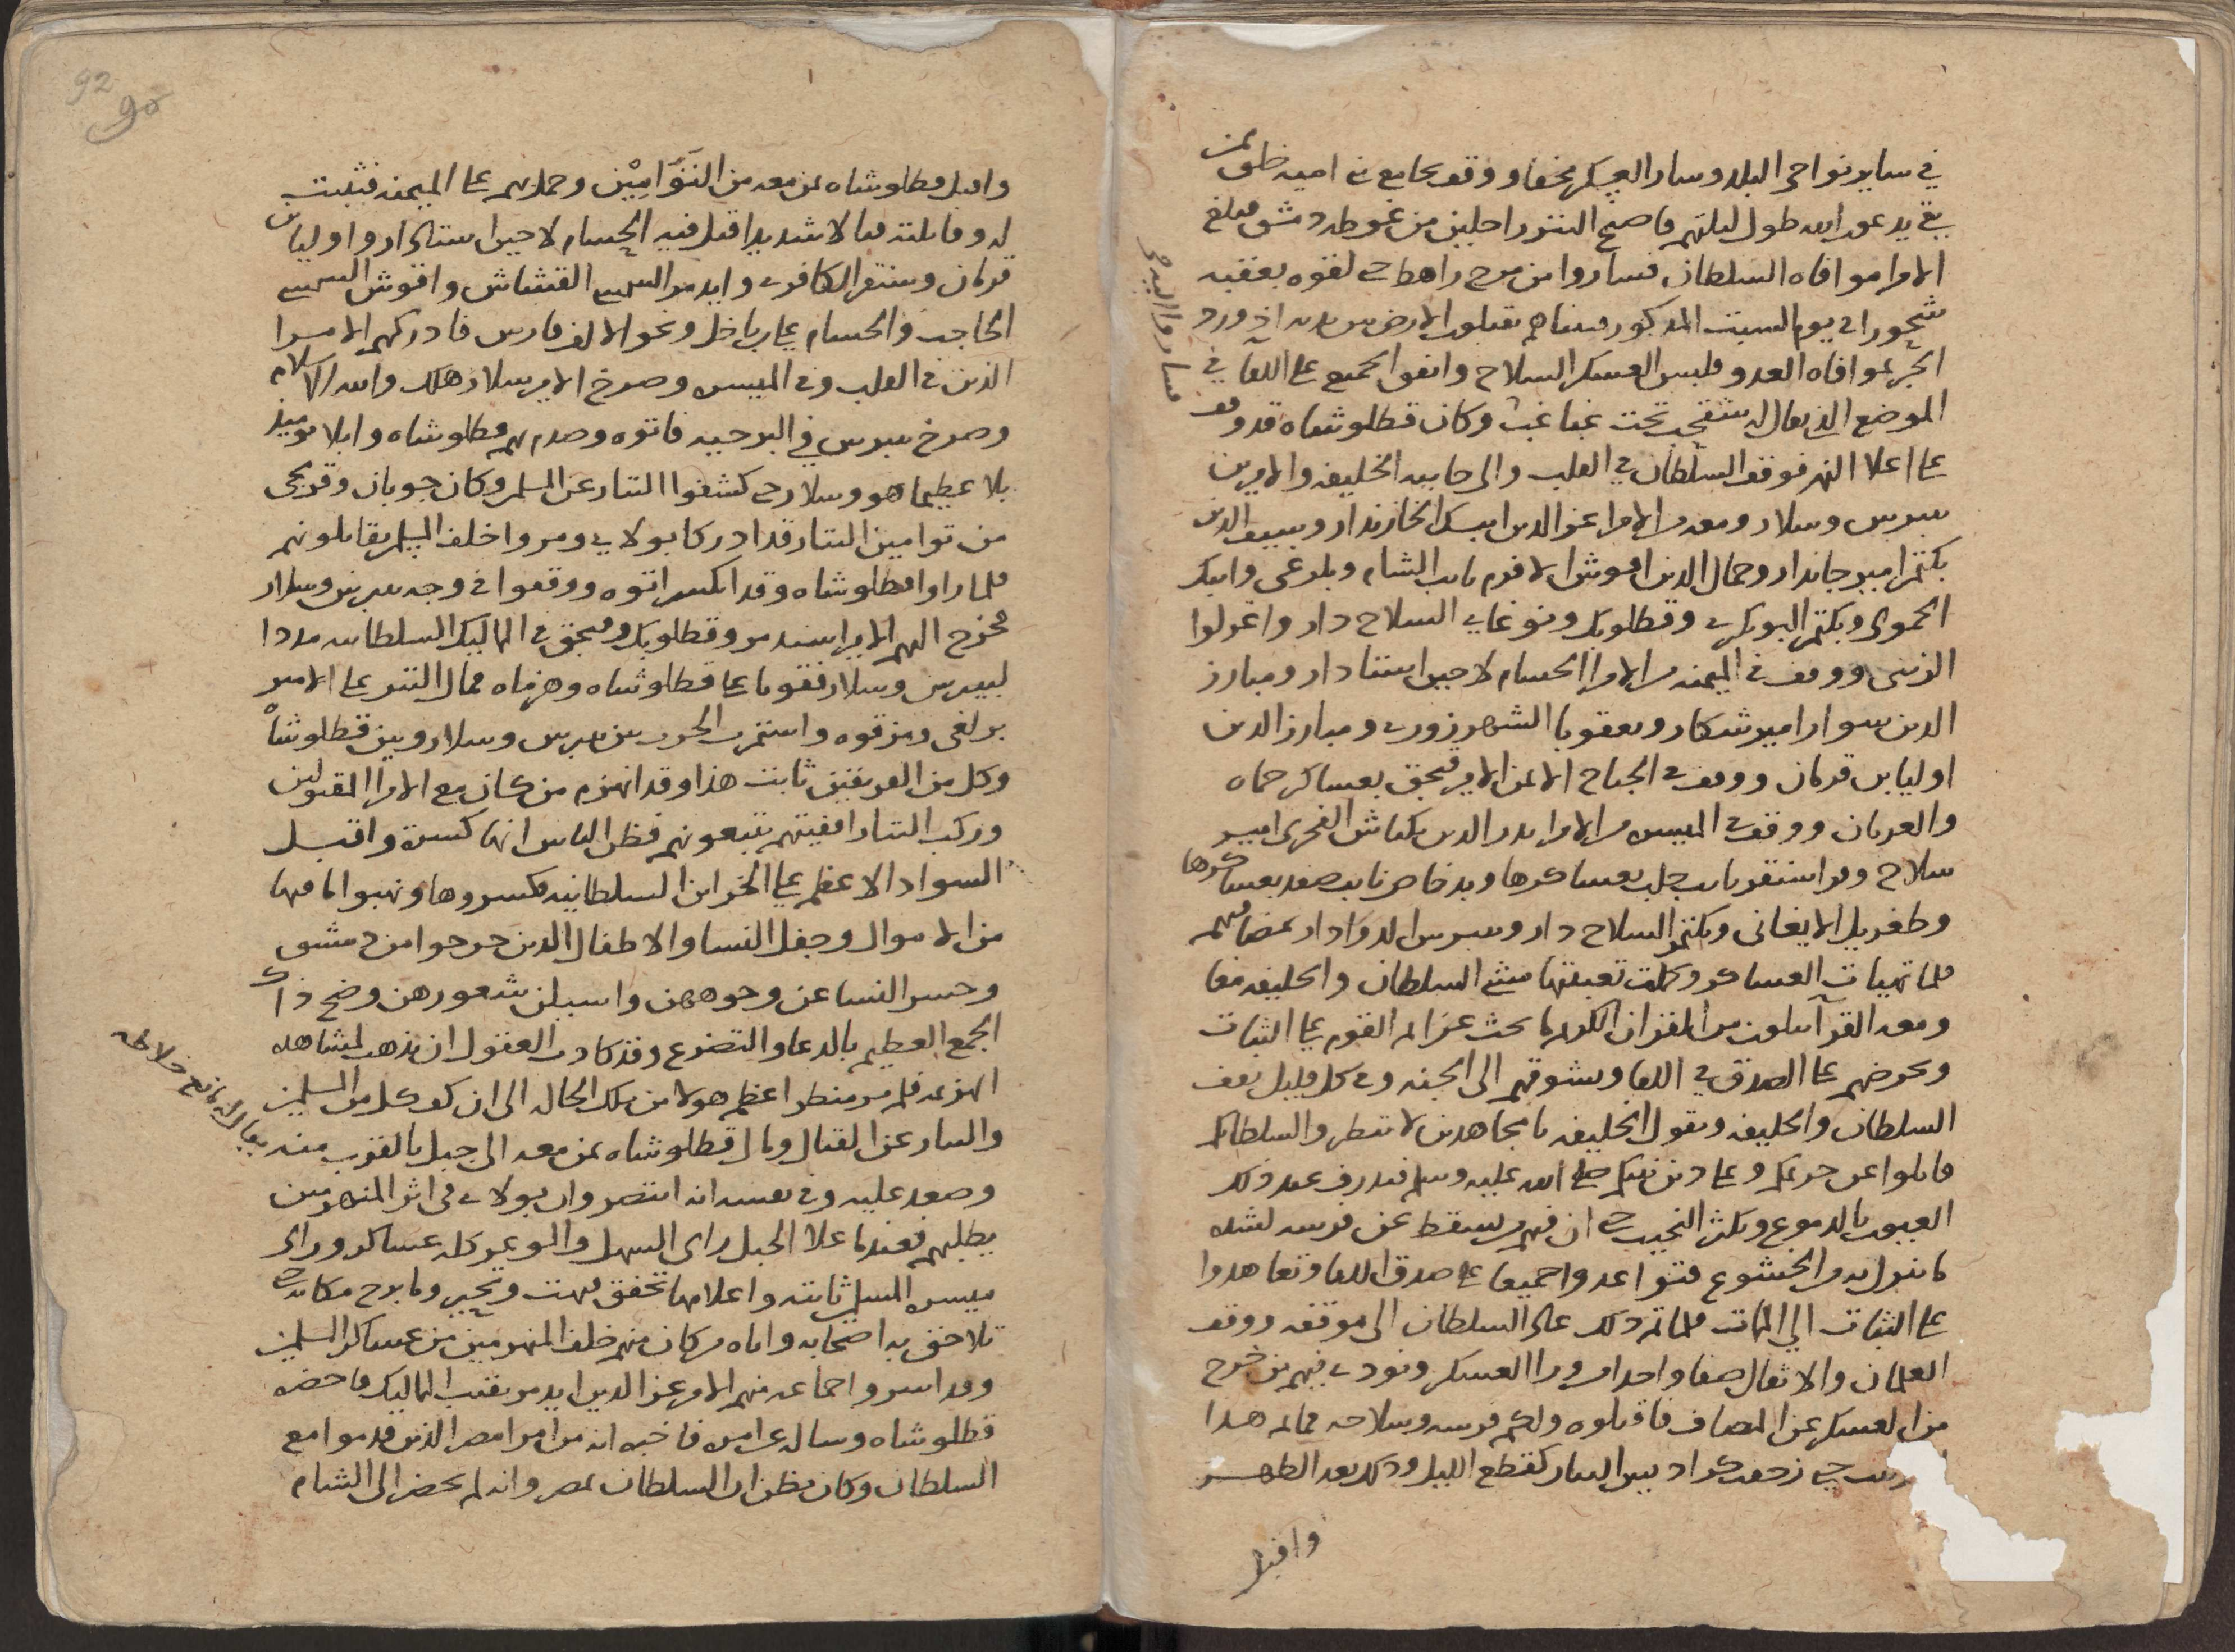 في ساير نواحى البلد وسار العسكر مخفا ووقف بجامع بنى امية خلق ممن
بقي يدعون الله طول ليلتهم فاصبح التتر راحلين من غوطة دمشق فبلغ
الامرا موافاه السلطان فساروا من مرج راهط حتى لقوه بعقبه
شحورا في يوم السبت المذكور فبيناهم يقبلون الارض بين يديه اذ ورد
الخبر بموافاه العدو فلبس العسكر السلاح واتفق الجميع على اللقا في
الموضع الذي يقال له شقحب تحت غباغب وكان قطلوشاه قد وقف
على اعلا النهر فوقف السلطان في القلب والى جانبه الخليفه والاميرين
بيبرس وسلار ومعه من الامرا عز الدين ايبك الخازندار وسيف الدين
بكتمر امير جاندار وجمال الدين اقوش الافرم نايب الشام وبلرغى وايبك
الحموى وبكتمر البوبكري وقطلوبك ونوغاي السلاح دار واغرلوا
الزينى ووقف في الميمنه من الامرا الحسام لاجين استادار ومبارز
الدين سوار امير شكار ويعقوبا الشهرزوري ومبارز الدين
اوليا بن قرمان ووقف في الجناح الايمن الامير قبجق بعساكر حماه
والعربان ووقف في الميسره من الامرا بدر الدين بكتاش الفخرى امير
سلاح وقراسنقر نايب حلب بعساكرها وبدخاص نايب صفد بعساكرها
وطغريل الايغانى وبكتمر السلاح دار وبيبرس الدوادار بمضافيهم
فلما تهيات العساكر وكملت تعبيتها مشى السلطان والخليفه معا
ومعه القرآ يتلون من القران الكريم ما يحث عزايم القوم على الثبات
ويحرضهم على الصدق في اللقا ويشوقهم الى الجنه وفي كل قليل يقف
السلطان والخليفه ويقول الخليفه يا مجاهدين لا تنظروا لسلطانكم
قاتلوا عن حريمكم وعلى دين نبيكم صلى الله عليه وسلم فتذرف عند ذلك
العيون بالدموع ويكثر النحيب حتى ان فيهم من يسقط عن فرسه لشده
ما نزل به من الخشوع فتواعدوا جميعا على صدق اللقا وتعاهدوا
على الثبات الى الممات فلما تم ذلك عاد السلطان الى موقفه ووقف
الغلمان والاثقال صفا واحدا من ورا العسكر ونودي فيهم من خرج
من العسكر عن المصاف فاقتلوه ولكم فرسه وسلاحه فما تم هذا
حتى زحفت كراديس التتار كقطع الليل وذلك بعد الظهر
واقبل
واقبل قطلوشاه بمن معه من التوامين وحمل بهم على الميمنه فثبتت
له وقاتلته قتالا شديدا قتل فيه الحسام لاجين استادار واوليا بن
قرمان وسنقر الكافري وايدمر الشمسي القشاش واقوش الشمسي
الحاجب والحسام على بن باخل ونحو الالف فارس فادركهم الامرا
الذين في القلب وفي الميسره وصرخ الامير سلار هلك والله الاسلام
وصرخ بيبرس في البرجيه فاتوه وصدم بهم قطلوشاه وابلا يوميذ
بلا عظيما هو وسلار حتى كشفوا التتار عن المسلمين وكان جوبان وقرمجى
من توامين التتار قد ادركا بولاي ومروا خلف المسلمين يقاتلونهم
فلما راوا قطلوشاه وقد انكسر اتوه ووقفوا في وجه بيبرس وسلار
فخرج اليهم الامير اسندمر وقطلوبك وقبجق في المماليك السلطانيه مددا
لبيبرس وسلار فقويا على قطلوشاه وهزماه فمال التتر على الامير
برلغى ومزقوه واستمرت الحرب بين بيبرس وسلار وبين قطلوشاه
وكل من الفريقين ثابت هذا وقد انهزم من كان مع الامرا المقتولين
وركب التتار اقفيتهم يتبعونهم فظن الناس انها كسرة واقبل
السواد الاعظم على الخزاين السلطانيه فكسروها ونهبوا ما فيها
من الاموال وجفل النسا والاطفال الذين خرجوا من دمشق
وحسر النسا عن وجوههن واسبلن شعورهن وضج ذاك
الجمع العظيم بالدعا والتضرع وقد كادت العقول ان تذهب لمشاهده
الهزيمه فلم ير منظر اعظم هولا من تلك الحاله الى ان كف كل من المسلمين
والتتار عن القتال ومال قطلوشاه بمن معه الى جبل بالقرب منه
وصعد عليه وفي نفسه انه انتصر وان بولاي في اثر المنهزمين
يطلبهم فعندما علا الجبل راى السهل والوعر كله عساكر وراى
ميسره المسلمين ثابته واعلامها تخفق فبهت وتحير وما برح مكانه حتى
تلاحق به اصحابه واتاه من كان منهم خلف المنهزمين من عساكر المسلمين
وقد اسروا جماعه منهم الامير عز الدين ايدمر نقيب المماليك فاحضره
قطلوشاه وساله عن امره فاخبره انه من امرا مصر الذين قدموا مع
السلطان وكان يظن ان السلطان بمصر وانه لم يحضر الى الشام